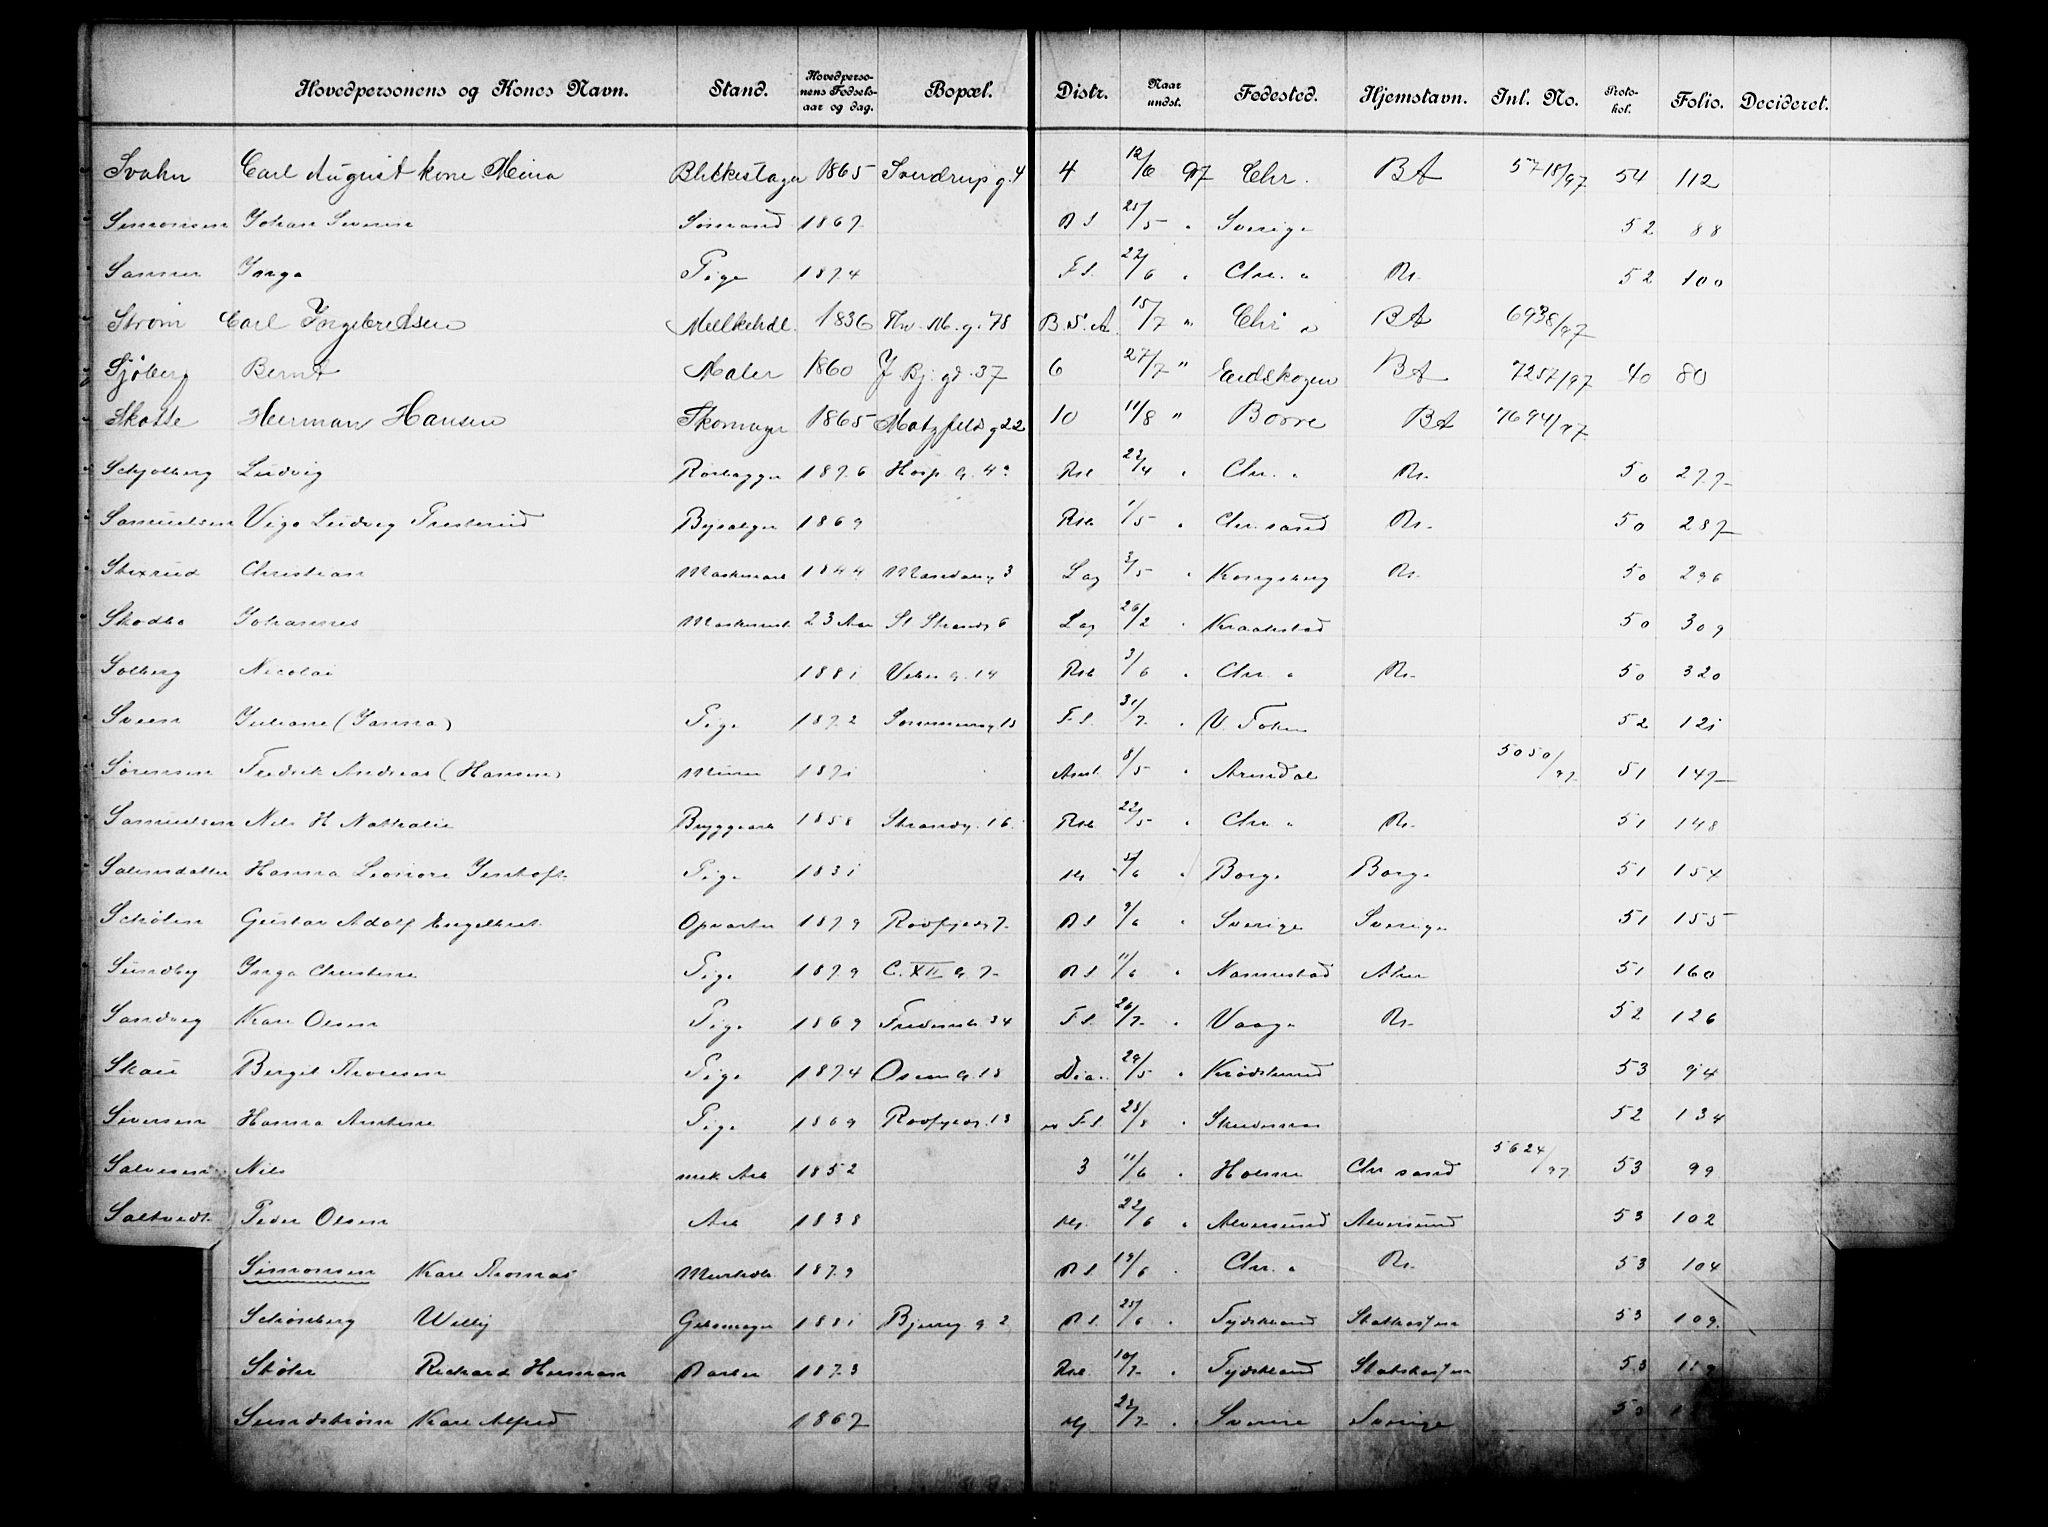 Hovedpersonens og Kones Navn. Stand. Hovedpersonens Fødselsaar og dag. Bopæl. Distr. Naar undst. Fødested. Hjemstavn. Inl. No. Protokol. Folio. Decideret.
Svahn Carl August kone Mina 1865 Sverdrup g. 4 4 12/6 97 Chr. BA 5718/97 54 112
Simonsen Johan Severin Sømand 1867 RS 25/5 " Sverige 52 88
Sanner Inga Pige 1874 FS. 22/6 " Chr. " Rs. 52 100
Strøm Carl Ingebretsen Melkehdl. 1836 Th. M. g. 78 B.S.A. 15/7 " Chr " BA 6938/97
Sjøberg Bernt Maler 1860 Bj. gd. 37 6 27/7 " Eidskogen BA 7257/97 40 80
Skotte Herman Hansen Skomager 1865 Motzfelds g 22 10 11/8 " Borre BA 7694/97
Schjølberg Ludvig 1876 Hosp. g. 4a Rst 22/4 " Chr. " Rs. 50 277
Samuelsen Vigo Ludvig 1869 Rst 1/5 " Chr.sand Rs. 50 287
Stixrud Christian Maskinarb 1844 3 Lag 3/5 " Kongsberg Rs. 50 296
Johannes 23 Aar St Strandg 6 Lag 26/2 " Kraakstad 50 309
Solberg Nicolai 1881 g. 14 Rst 3/6 " Chr. " Rs. 50 320
Sveen Juliane (Janna) Pige 1872 13 FS. 31/7 " V. Toten 52 121
Sørensen Fredrik Andreas (Hansen) Murer 1871 8/5 " Arendal 5050/97 51 147
Samuelsen Nils H Nathalie Bryggearb 1858 Strandg. 16 Rst 22/5 " Chr. " Rs. 51 148
Salemdatter Hanna Leonore Pige 1831 Borge Borge 51 154
Schølin Gustav Adolf Engelbret Opvarter 1879 7 RS 9/6 " Sverige Sverige 51 155
Sundby Inga Christine Pige 1879 C. XII g. 7 RS 11/6 " Nannestad Aker 51 160
Sandvig Kari Olsen Pige 1869 34 FS. 26/7 " Vaage Rs. 52 126
Skau Bergit Thoresen Pige 1874 g. 18 Dia. 29/5 " Krødsherred 53 94
Sivertsen Hanna Antine Pige 1869 13 FS. 28/8 " Skudesnes 52 134
Salvesen Nils mek. Arb 1852 3 11/6 " Holme Chr sand 5624/97 53 99
Saltvedt Peder Olsen Arb 1838 22/6 " Alversund Alversund 53 102
Simonsen Karl Thomas 1879 RS 19/6 " Chr. " Rs. 53 104
Schönberg Willy 1881 g. 2 RS 25/6 " Tydskland 53 109
Richard Herman Barber 1873 Rst 10/7 " Tydskland 53
Sundstrøm Karl Alfred 1867 28/7 " Sverige Sverige 53